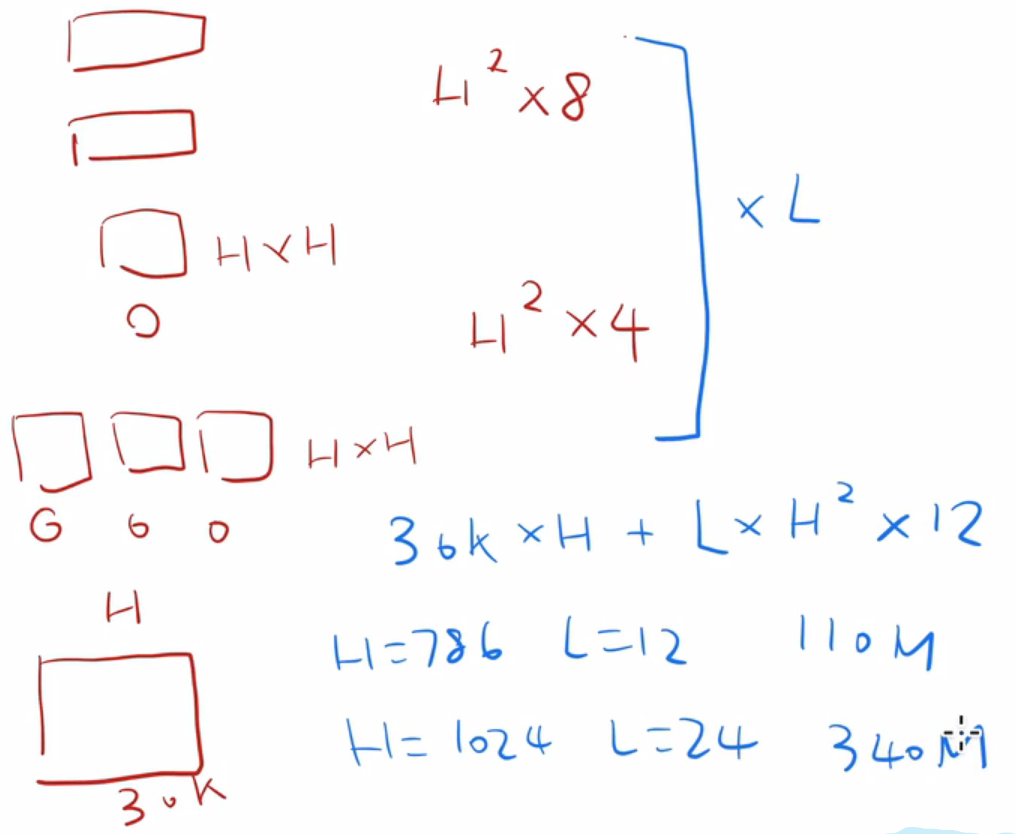 H² × 8
× L
H × H
O
H² × 4
H × H
G 6 0
30k × H + L × H² × 12
H
H=786 L=12 110M
H=1024 L=24 340M
30K